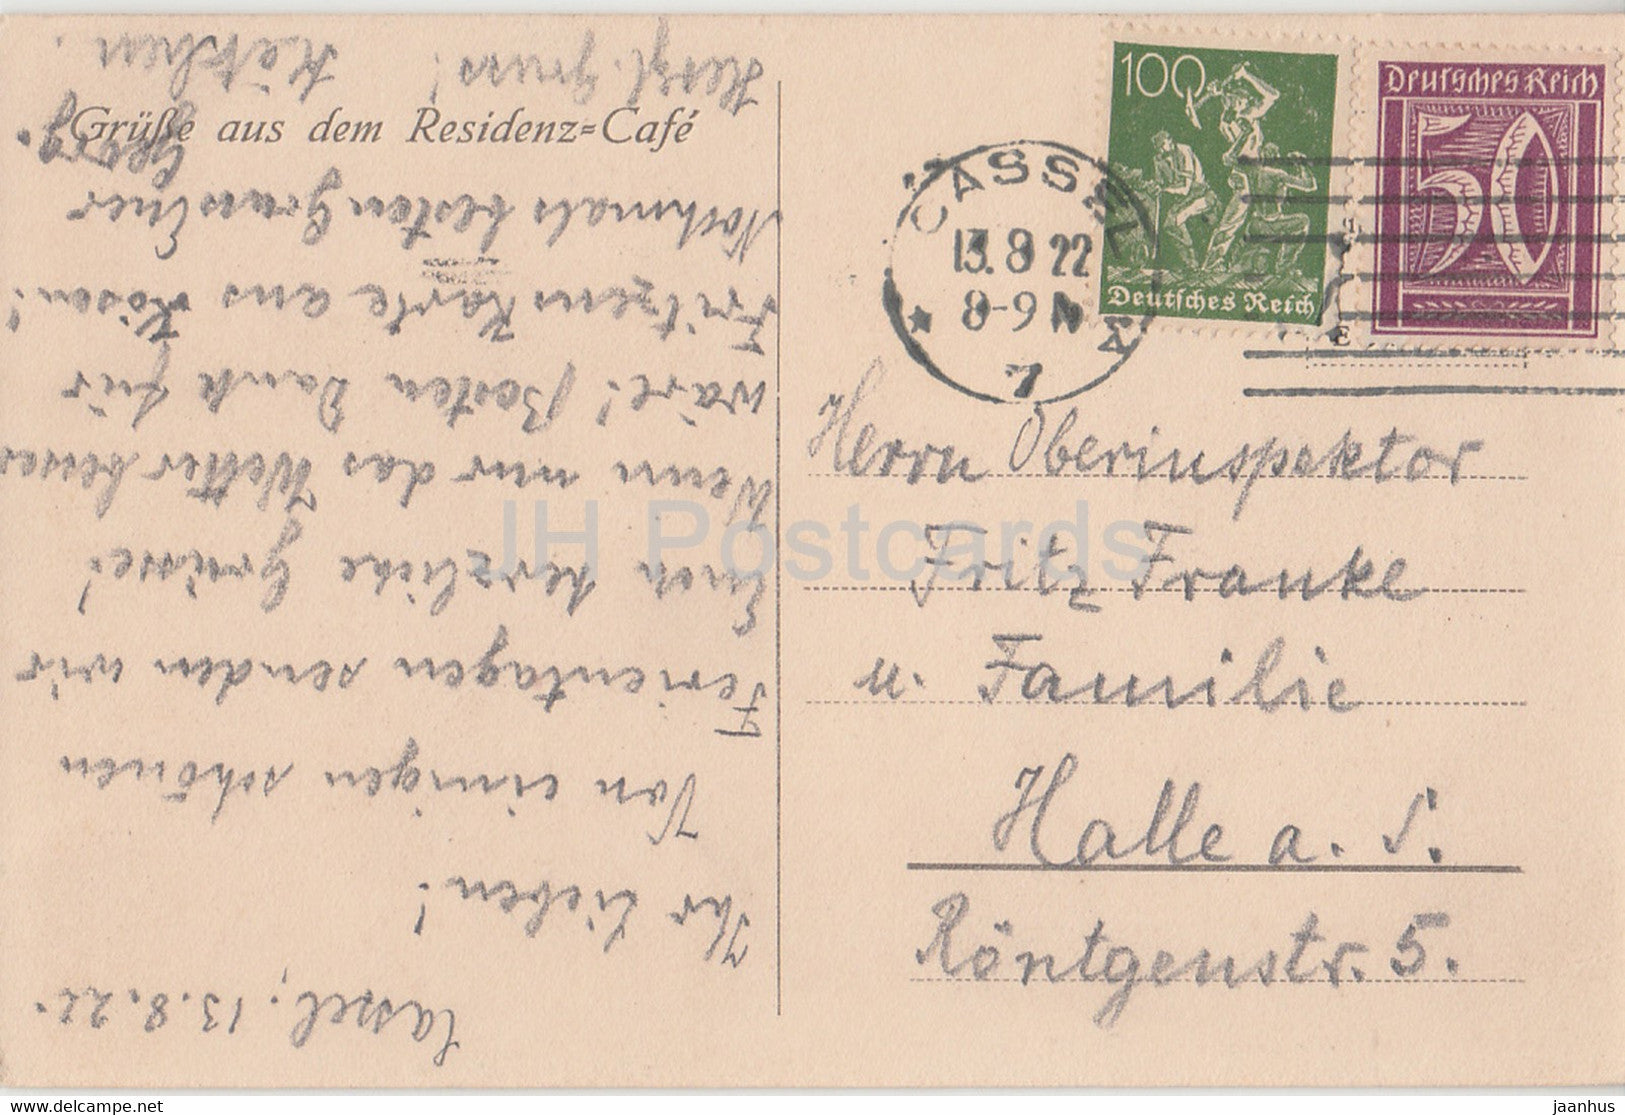 Grüße aus dem Residenz=Café
Cassel, 13.8.22.
Ihr Lieben!
Von einigen schönen
Ferientagen senden wir
Euch herzliche Grüsse!
Wenn nur das Wetter besser
wäre! Besten Dank für
Fritzens Karte aus Kösen!
Nochmals besten Gruss Euer
Georg.
Herzl. Gruss! Kätchen.
100
Deutsches Reich
Deutsches Reich
50
CASSEL
13.8 22
8-9 N
7
Herrn Oberinspektor
Fritz Franke
u. Familie
Halle a. S.
Röntgenstr. 5.
JH Postcards
www.delcampe.net
jaanhus